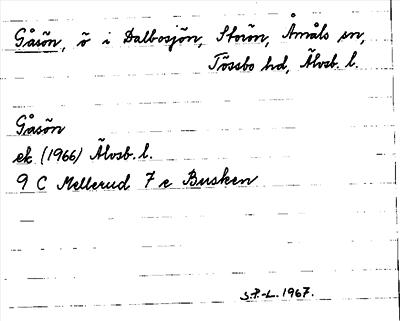 Gåsön, ö i Dalbosjön, Storön, Åmåls sn,
Tössbo hd, Älvsb. l.
Gåsön
ek. (1966) Älvsb. l.
9 C Mellerud 7 e Busken
S.P.-L. 1967.